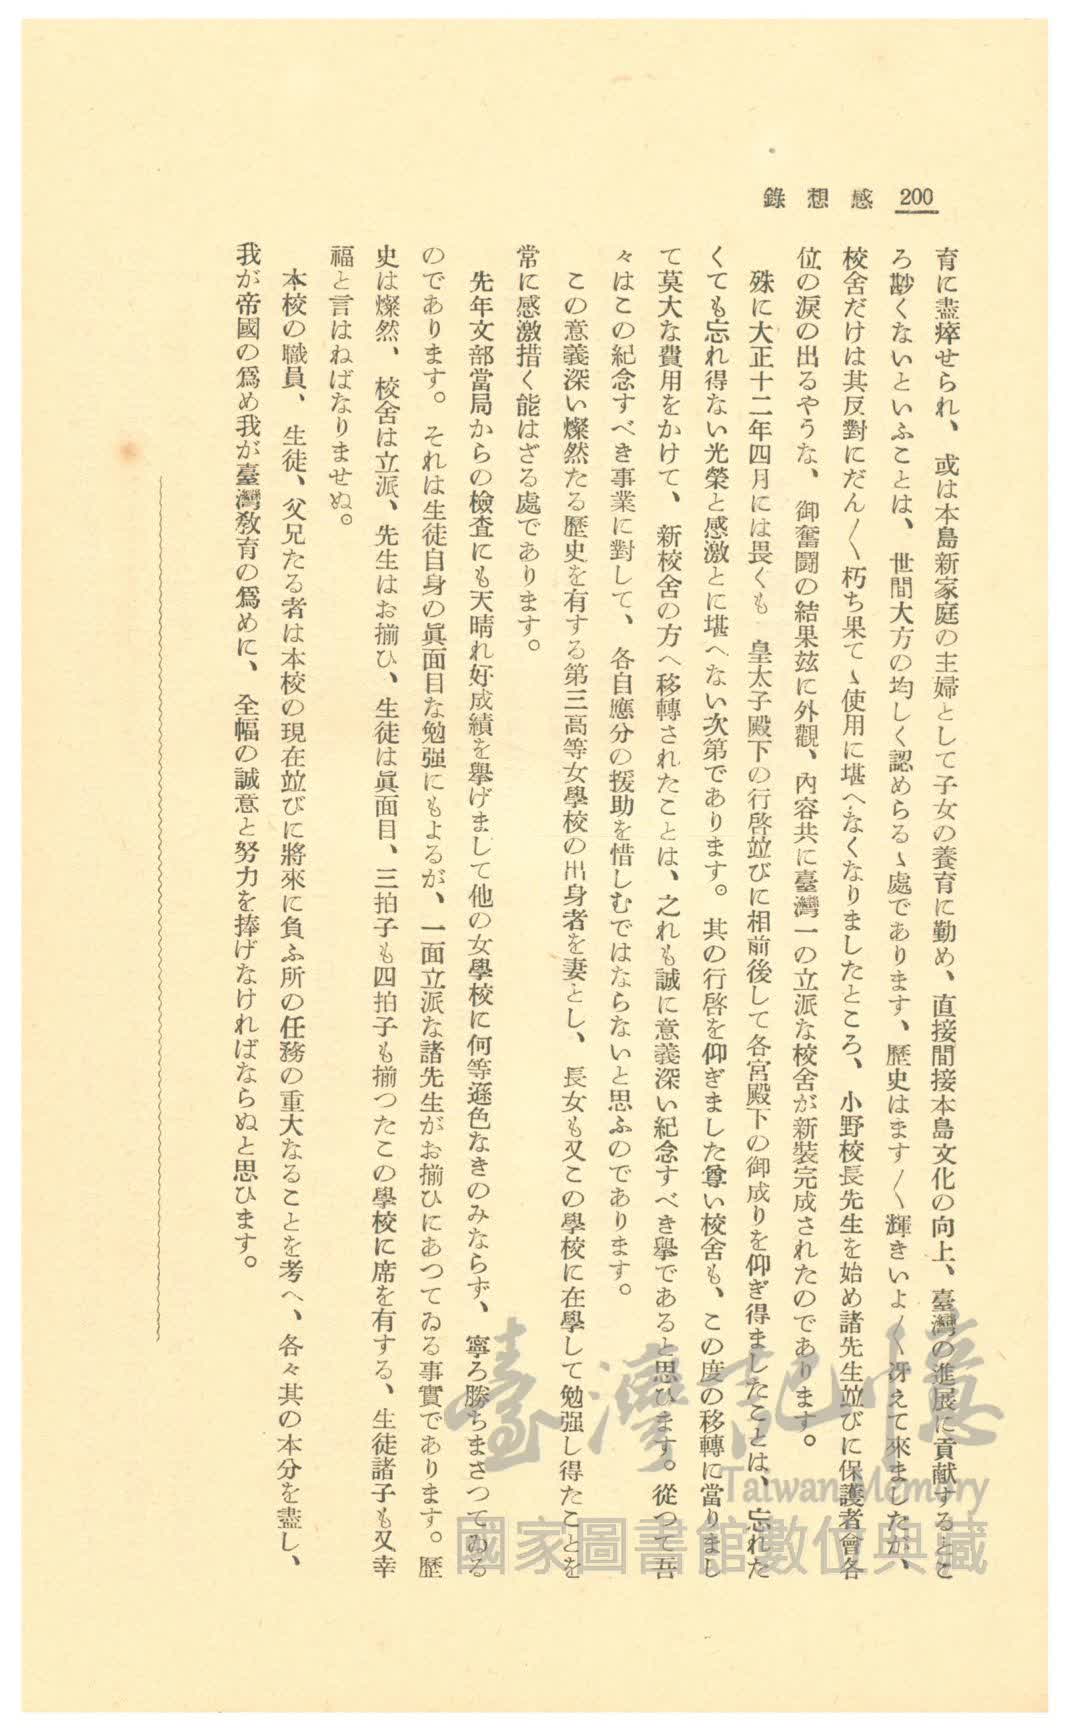 200 感想錄
育に盡瘁せられ、或は本島新家庭の主婦として子女の養育に勤め、直接間接本島文化の向上、臺灣の進展に貢献するとこ
ろ尠くないといふことは、世間大方の均しく認めらるゝ處であります、歷史はます〱輝きいよ〱冴えて來ましたが、
校舍だけは其反對にだん〱朽ち果てゝ使用に堪へなくなりましたところ、小野校長先生を始め諸先生並びに保護者會各
位の淚の出るやうな、御奮鬪の結果玆に外觀、內容共に臺灣一の立派な校舍が新裝完成されたのであります。
殊に大正十二年四月には畏くも 皇太子殿下の行啓並びに相前後して各宮殿下の御成りを仰ぎ得ましたことは、忘れた
くても忘れ得ない光榮と感激とに堪へない次第であります。其の行啓を仰ぎました尊い校舍も、この度の移轉に當りまし
て莫大な費用をかけて、新校舍の方へ移轉されたことは、之れも誠に意義深い紀念すべき擧であると思ひます。從つて吾
々はこの紀念すべき事業に對して、各自應分の援助を惜しむではならないと思ふのであります。
この意義深い燦然たる歷史を有する第三高等女學校の出身者を妻とし、長女も又この學校に在學して勉强し得たことを
常に感激措く能はざる處であります。
先年文部當局からの檢査にも天晴れ好成績を擧げまして他の女學校に何等遜色なきのみならず、寧ろ勝ちまさつてゐる
のであります。それは生徒自身の眞面目な勉强にもよるが、一面立派な諸先生がお揃ひにあつてゐる事實であります。歷
史は燦然、校舍は立派、先生はお揃ひ、生徒は眞面目、三拍子も四拍子も揃つたこの學校に席を有する、生徒諸子も又幸
福と言はねばなりませぬ。
本校の職員、生徒、父兄たる者は本校の現在並びに將來に負ふ所の任務の重大なることを考へ、各々其の本分を盡し、
我が帝國の爲め我が臺灣敎育の爲めに、全幅の誠意と努力を捧げなければならぬと思ひます。
臺灣記憶
Taiwan Memory
國家圖書館數位典藏